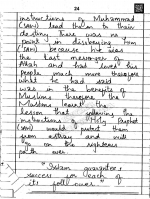 24
instructions of Muhammad
(saw) lead them to their
destiny. There was no
point in disobeying Him
(saw) because he was
the last messenger of
Allah and had loved his
people much more therefore
what he had said
was in the benefits of
Muslims therefore the
Muslims learnt the
lesson that following the
instructions of Holy Prophet
(saw) would protect them
from astray and will
on the righteous
path ever
"Islam guarantees
success for each of
its followers"